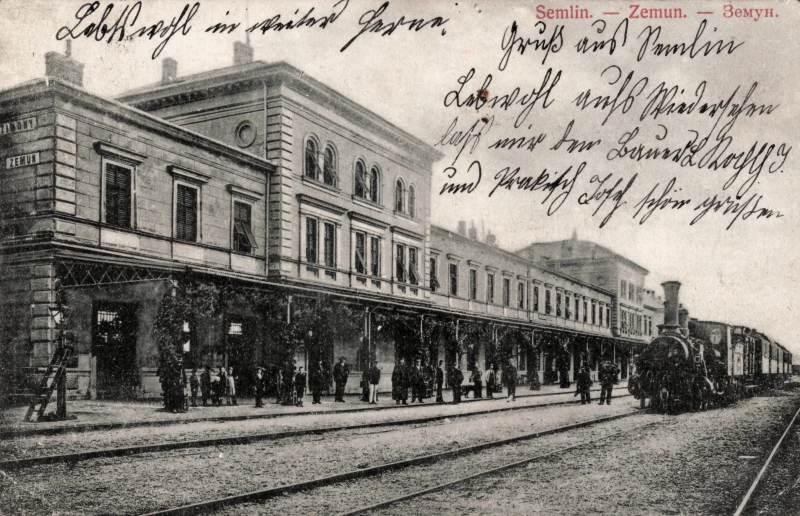 Lebts wohl in weiter Ferne,
Semlin. — Zemun. — Земун.
Gruß aus Semlin
Lebwohl aufs Wiedersehen
laß mir den Bauer L
und Prakisch Josef schön grüßen
ZIMONY
ZEMUN